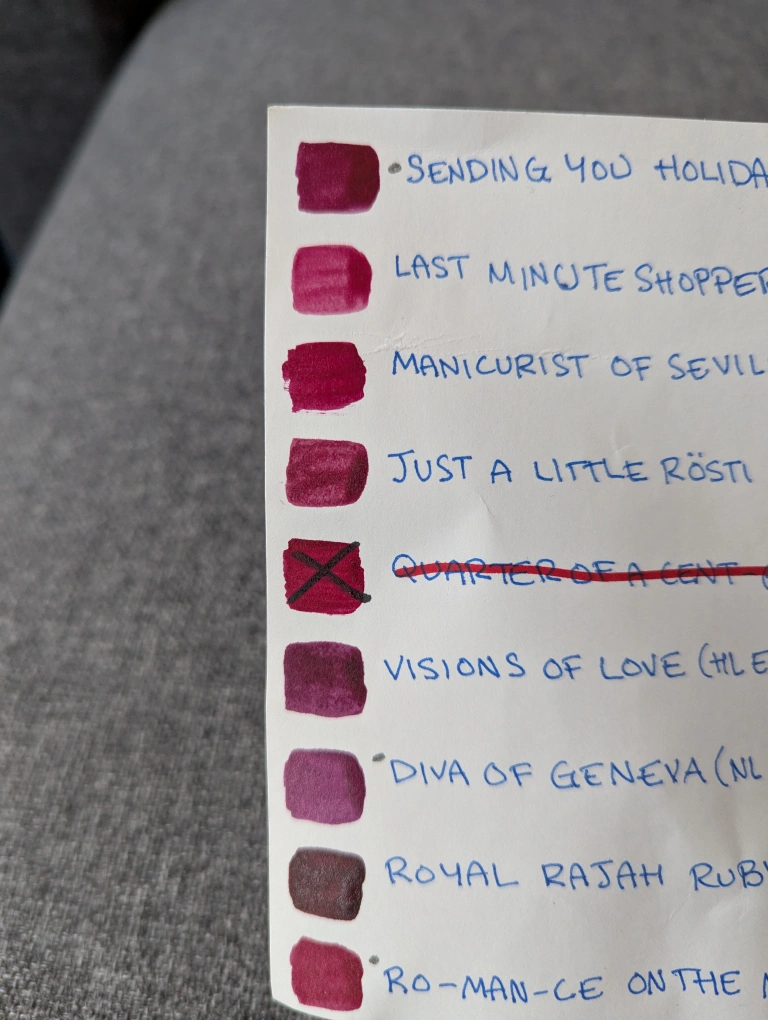 SENDING YOU HOLIDA
LAST MINUTE SHOPPER
MANICURIST OF SEVIL
JUST A LITTLE RÖSTI
QUARTER OF A CENT-
VISIONS OF LOVE (HL E
DIVA OF GENEVA (NL
ROYAL RAJAH RUBY
RO-MAN-CE ON THE